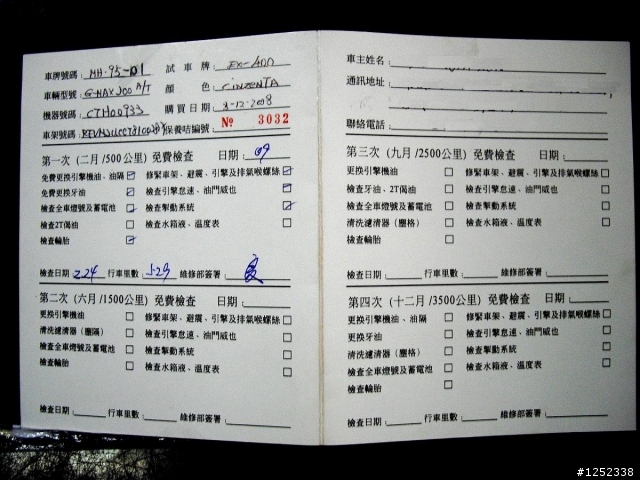 車牌號碼：MH-95-01 試車牌：EX-400
車輛型號：G-MAX200 A/T 顏色：CINZENTA
機器號碼：CTH00933 購買日期：3-12-2008
車架號碼： 保養咭編號：№ 3032
第一次（二月/500公里）免費檢查 日期：09
免費更換引擎機油、油隔 修緊車架、避震、引擎及排氣喉螺絲
免費更換牙油 檢查引擎怠速、油門威也
檢查全車燈號及蓄電池 檢查掣動系統
檢查2T偈油 檢查水箱液、溫度表
檢查輪胎
檢查日期：2.24 行車里數：529 維修部簽署：
第二次（六月/1500公里）免費檢查 日期：
更換引擎機油 修緊車架、避震、引擎及排氣喉螺絲
清洗濾清器（塵隔） 檢查引擎怠速、油門威也
檢查全車燈號及蓄電池 檢查掣動系統
檢查輪胎 檢查水箱液、溫度表
檢查日期： 行車里數： 維修部簽署：
車主姓名：
通訊地址：
聯絡電話：
第三次（九月/2500公里）免費檢查 日期：
更換引擎機油 修緊車架、避震、引擎及排氣喉螺絲
檢查牙油、2T偈油 檢查引擎怠速、油門威也
檢查全車燈號及蓄電池 檢查掣動系統
清洗濾清器（塵格） 檢查水箱液、溫度表
檢查輪胎
檢查日期： 行車里數： 維修部簽署：
第四次（十二月/3500公里）免費檢查 日期：
更換引擎機油、油隔 修緊車架、避震、引擎及排氣喉螺絲
更換牙油 檢查引擎怠速、油門威也
清洗濾清器（塵格） 檢查掣動系統
檢查全車燈號及蓄電池 檢查水箱液、溫度表
檢查輪胎
檢查日期： 行車里數： 維修部簽署：
#1252338